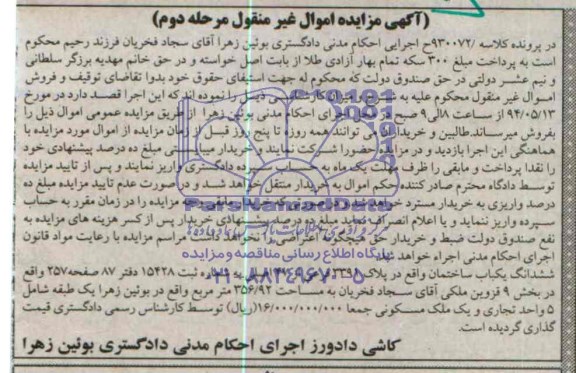 (آگهی مزایده اموال غیر منقول مرحله دوم)
در پرونده کلاسه /۹۳۰۰۷۲ح اجرایی احکام مدنی دادگستری بوئین زهرا آقای سجاد فخریان فرزند رحیم محکوم
است به پرداخت مبلغ ۳۰۰ سکه تمام بهار آزادی طلا از بابت اصل خواسته و در حق خانم مهدیه برزگر سلطانی
و نیم عشر دولتی در حق صندوق دولت که محکوم له جهت استیفای حقوق خود بدوا تقاضای توقیف و فروش
اموال غیر منقول محکوم علیه به شرح و میزان کارشناسی ذیل را نموده اند که این اجرا قصد دارد در مورخ
۹۴/۰۵/۱۳ از ساعت ۸الی۹ صبح در محل اجرای احکام مدنی بوئین زهرا از طریق مزایده عمومی اموال ذیل را
بفروش میرساند.طالبین و خریداران می توانند همه روزه تا پنج روز قبل از زمان مزایده از اموال مورد مزایده با
هماهنگی این اجرا بازدید و در مزایده حضورا شرکت نمایند و خریدار میبایستی مبلغ ده درصد پیشنهادی خود
را نقدا پرداخت و مابقی را ظرف مهلت یک ماه به حساب سپرده دادگستری واریز نمایند و پس از تایید مزایده
توسط دادگاه محترم صادر کننده حکم اموال به خریدار منتقل خواهد شد و در صورت عدم تایید مزایده مبلغ ده
درصد واریزی به خریدار مسترد خواهد شد و در صورتی که خریدار مابقی مبلغ مزایده را در زمان مقرر به حساب
سپرده واریز ننماید و یا اعلام انصراف نماید مبلغ ده درصد پیشنهادی خریدار پس از کسر هزینه های مزایده به
نفع صندوق دولت ضبط و خریدار حق هیچگونه اعتراضی را نخواهد داشت مراسم مزایده با رعایت مواد قانون
اجرای احکام مدنی اجراء خواهد شد
پایگاه اطلاع رسانی مناقصه و مزایده
ششدانگ یکباب ساختمان واقع در پلاک ثبت ۱۵۴۲۸ دفتر ۸۷ صفحه۲۵۷ واقع
در بخش ۹ قزوین ملکی آقای سجاد فخریان به مساحت ۳۵۶/۹۴ متر مربع واقع در بوئین زهرا یک طبقه شامل
۵ واحد تجاری و یک ملک مسکونی جمعا ۱۶/۰۰۰/۰۰۰/۰۰۰(ریال) توسط کارشناس رسمی دادگستری قیمت
گذاری گردیده است.
کاشی دادورز اجرای احکام مدنی دادگستری بوئین زهرا